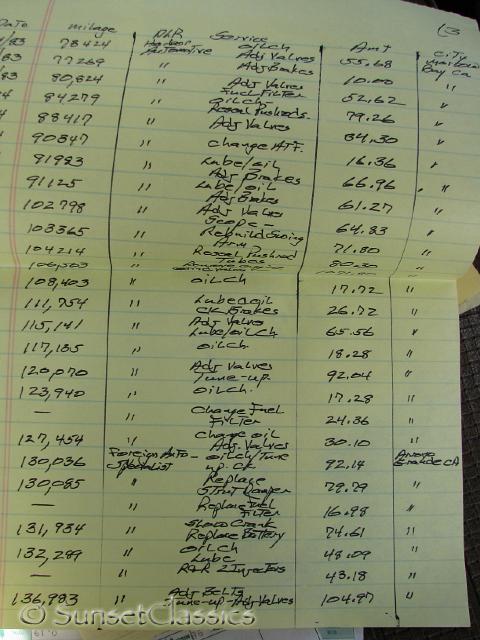 13
Date mileage D&R Service Amt City
/83 78424 Harbor Automotive Oil Ch Adj Valves 55.68 Half Moon Bay Ca
/83 77269 " Adj Brakes 10.00 "
/83 80,824 " Adj Valves Fuel Filter 52.62 "
84279 " Oil Ch Reseal Pushrods 79.26 "
88417 " Adj Valves 84.30 "
90847 " Change ATF. 16.36 "
91983 " Lube/oil Adj Brakes 66.96 "
91125 " Lube/oil Adj Brakes 61.27 "
102798 " Adj Valves Scope - 64.83 "
103365 " Rebuild Swing Arm 71.80 "
104214 " Reseal Pushrod Tubes 80.30 "
"
108,403 " Oil Ch 17.72 "
111,754 " Lube & oil Ck Brakes 26.72 "
115,141 " Adj Valves Lube/oil Ch 65.56 "
117,135 " Oil Ch. 18.28 "
120,070 " Adj Valves Tune-up- 92.04 "
123,940 " Oil Ch. 17.28 "
— " Change Fuel Filter 24.36 "
127,454 " Change oil Adj. Valves 30.10 "
130,036 Foreign Auto- Specialist Oil Ch/Tune up. CK 92.14 Arroyo Grande CA
130,085 " Replace Strut Damper 79.79 "
— " Replace Fuel Filter 16.98 "
131,934 " Slow Crank Replace Battery 74.61 "
132,299 " Oil Ch Lube 48.09 "
— " R&R 2 Injectors 43.18 "
136,983 " Adj Belts Tune-up-Adj Valves 104.97 "
© SunsetClassics